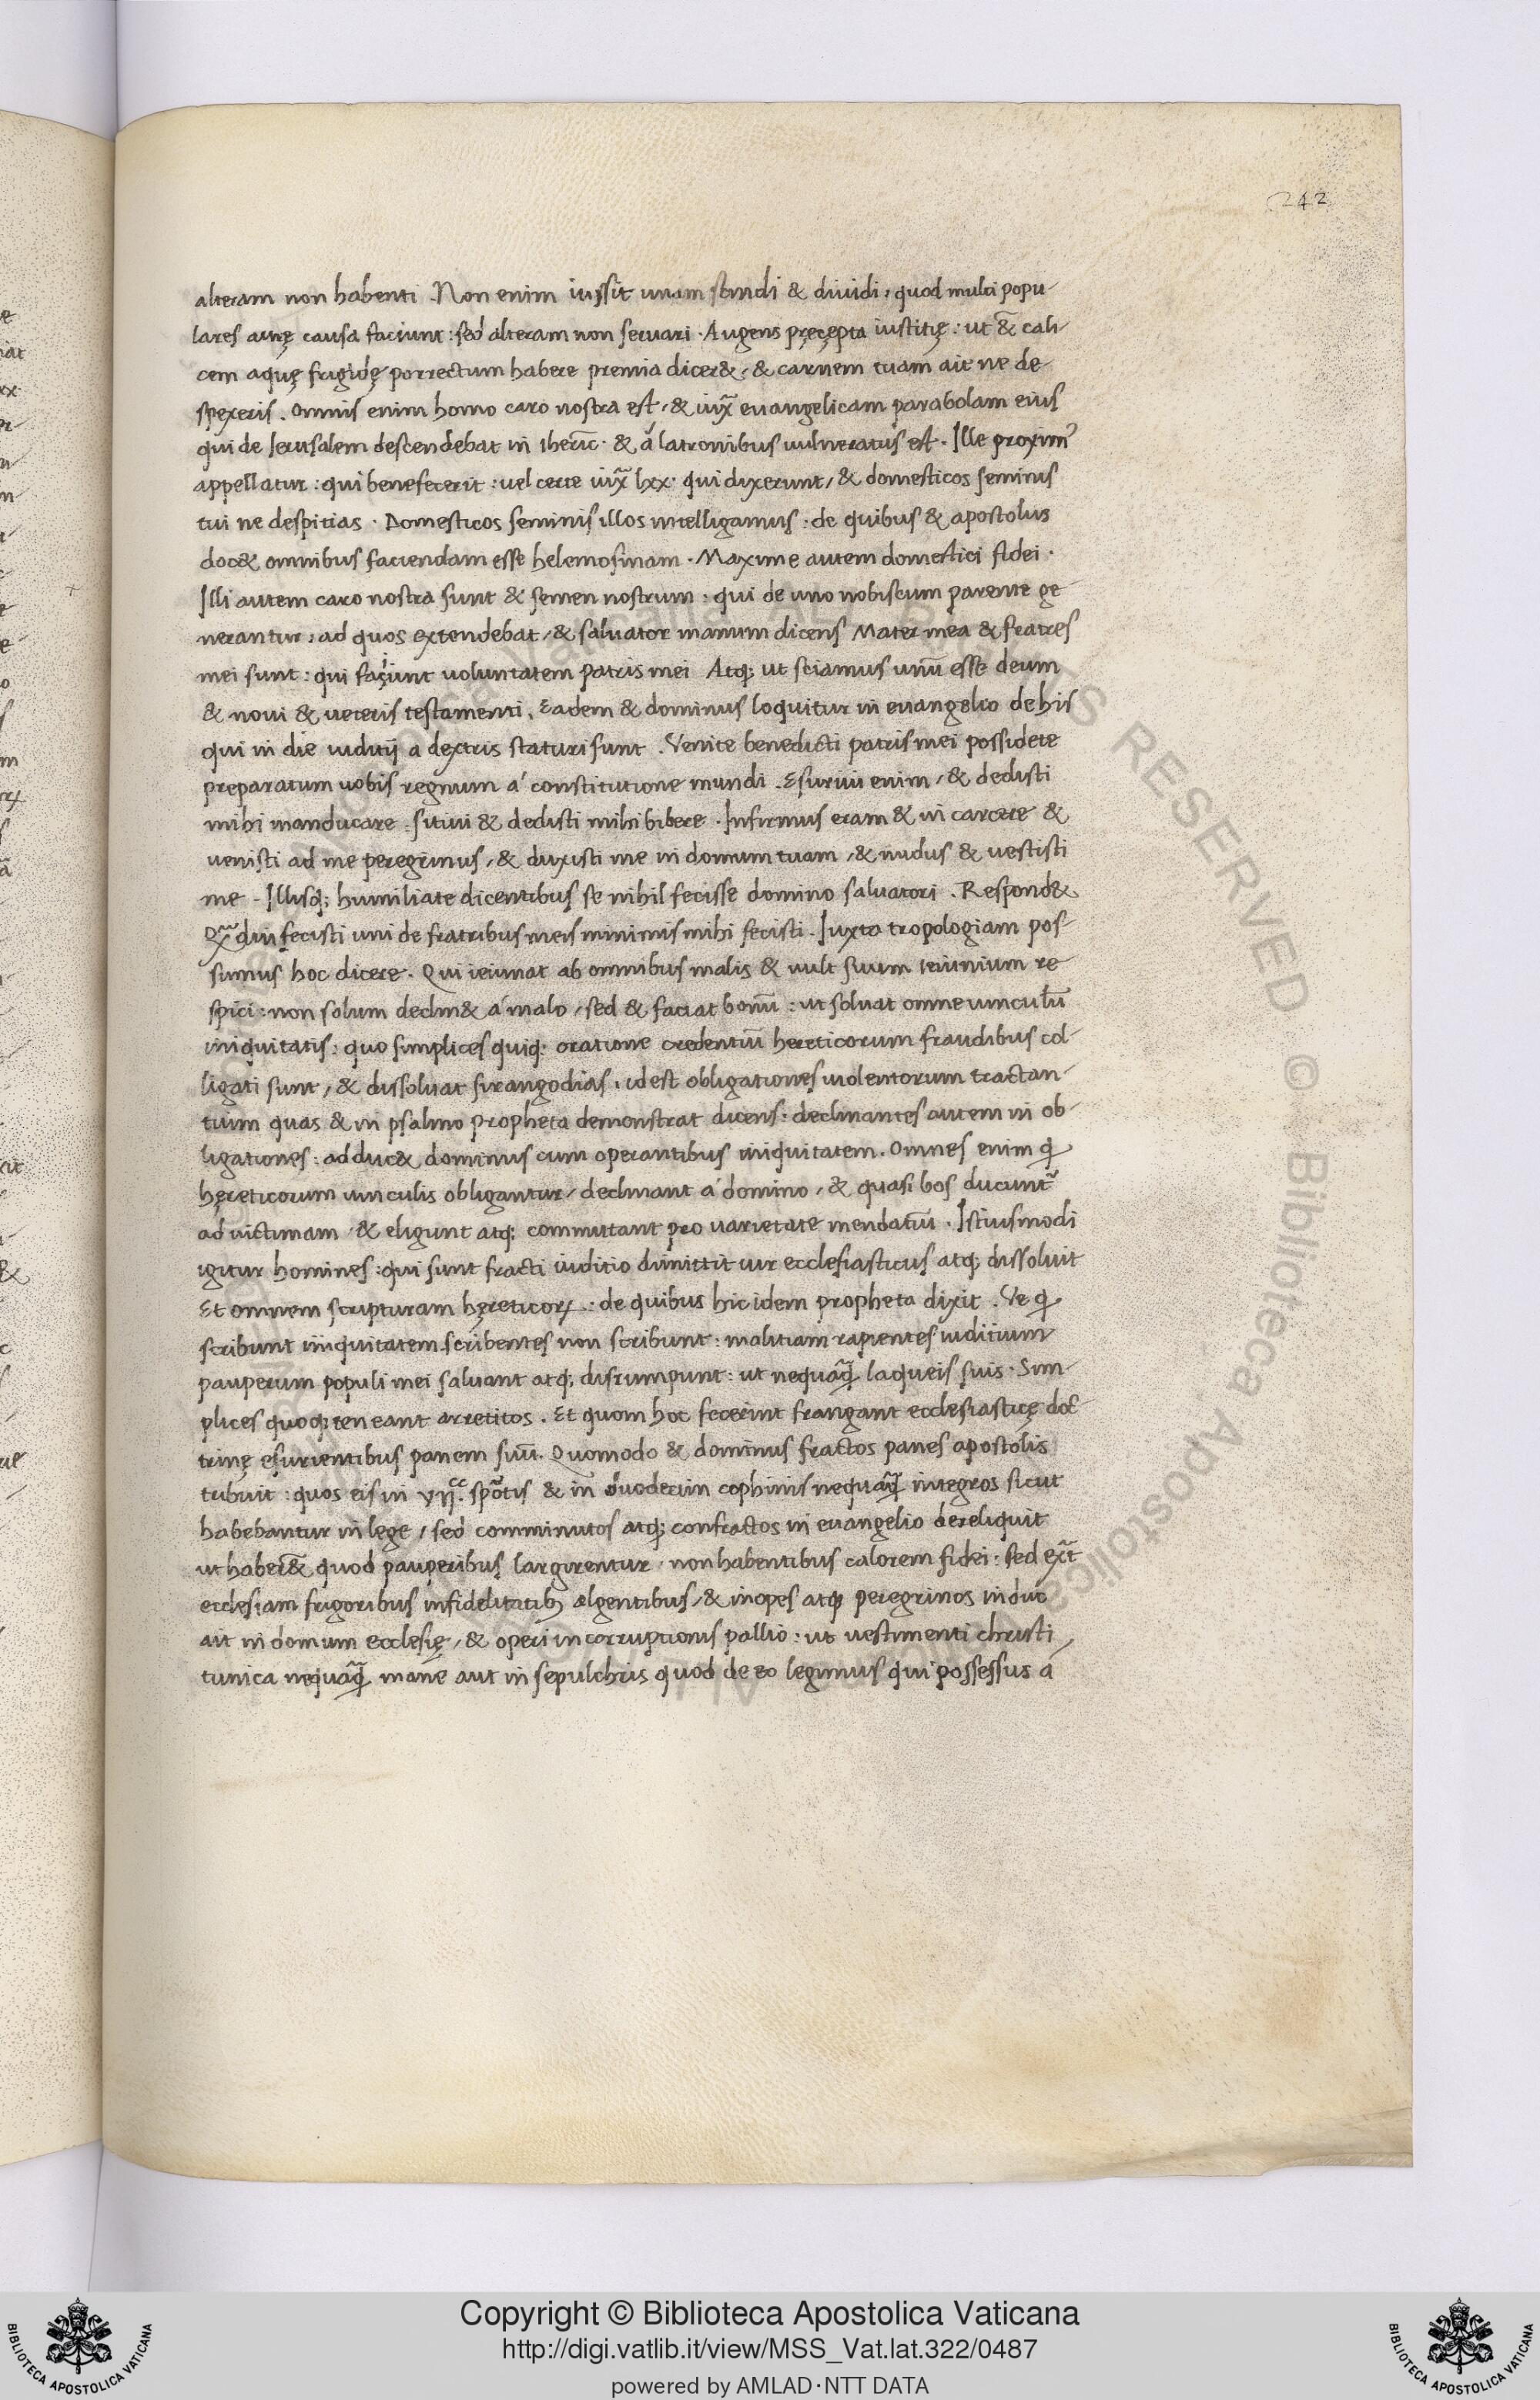 242
alteram non habenti. Non enim iussit unam scindi & diuidi: quod multi popu-
lares aurę causa faciunt: sed alteram non seruari. Augens pręcępta iustitię: ut & cali-
cem aquę frigidę porrectum habere premia dicer&, & carnem tuam ait ne de-
spexeris. Omnis enim homo caro nostra est, & iux̃ euangelicam parabolam eius
qui de Ierusalem descendebat in Iheric̃. & á latronibus uulneratus est. Ille proximꝰ
appellatur: qui benefecerit: uel certe iux̃ lxx. qui dixerunt, & domesticos seminis
tui ne despitias. Domesticos seminis illos intelligamus: de quibus & apostolus
doc& omnibus faciendam esse helemosinam. Maxime autem domestici fidei.
Illi autem caro nostra sunt & semen nostrum: qui de uno nobiscum parente ge-
nerantur: ad quos extendebat, & saluator manum dicens Mater mea & fratres
mei sunt: qui faciunt uoluntatem patris mei Atq; ut sciamus unũ esse deum
& noui & ueteris testamenti. Eadem & dominus loquitur in euangelio de his
qui in die iuditij a dextris staturi sunt. Venite benedicti patris mei possidete
preparatum uobis regnum á constitutione mundi. Esuriui enim, & dedisti
mihi manducare. sitiui & dedisti mihi bibere. Infirmus eram & in carcere &
uenisti ad me peregrinus, & duxisti me in domum tuam, & nudus & uestisti
me. Illisq; humiliate dicentibus se nihil fecisse domino saluatori. Respond&
Qx̃ diu fecisti uni de fratribus meis minimis mihi fecisti. Iuxta tropologiam pos-
sumus hoc dicere. Qui ieiunat ab omnibus malis & uult suum ieiunium re-
spici: non solum declin& á malo, sed & faciat bonũ: ut soluat omne uinculũ
iniquitatis: quo simplices quiq; oratione credentiũ hereticorum fraudibus col-
ligati sunt, & dissoluat strangodias, idest obligationes uiolentorum tractan-
tium quas & in psalmo propheta demonstrat dicens: declinantes autem in ob-
ligationes: adduc& dominus cum operantibus iniquitatem. Omnes enim ꝗ
hęreticorum uinculis obligantur, declinant á domino, & quasi bos ducunt̃
ad uictimam, & eligunt atq; commutant pro uarietate mendatiũ. Istiusmodi
igitur homines: qui sunt fracti iuditio dimittit uir ecclesiasticus atq; dissoluit
Et omnem scripturam hęreticoꝝ: de quibus hic idem propheta dixit. Ve ꝗ
scribunt iniquitatem. scribentes non scribunt: malitiam rapientes iuditium
pauperum populi mei saluant atq; disrumpunt: ut nequaꝗ̃ laqueis suis. Sim-
plices quoq; teneant arretitos. Et quom hoc fecerint frangant ecclesiasticę doc-
trinę esurientibus panem suũ. Quomodo & dominus fractos panes apostolis
tribuit: quos eis in vij. sportis & in duodecim cophinis nequaꝗ̃ integros sicut
habebantur in lege, sed comminutos atq; confractos in euangelio dereliquit
ut haber& quod pauperibus largirentur. non habentibus calorem fidei: sed ext̃
ecclesiam frigoribus infidelitatibꝫ algentibus, & inopes atq; peregrinos induc
ait in domum ecclesię, & operi incorruptionis pallio: ut uestimenti christi
tunica nequaꝗ̃ mane aut in sepulchris quod de eo legimus qui possessus á
Copyright © Biblioteca Apostolica Vaticana
http://digi.vatlib.it/view/MSS_Vat.lat.322/0487
powered by AMLAD·NTT DATA
BIBLIOTECA APOSTOLICA VATICANA
BIBLIOTECA APOSTOLICA VATICANA